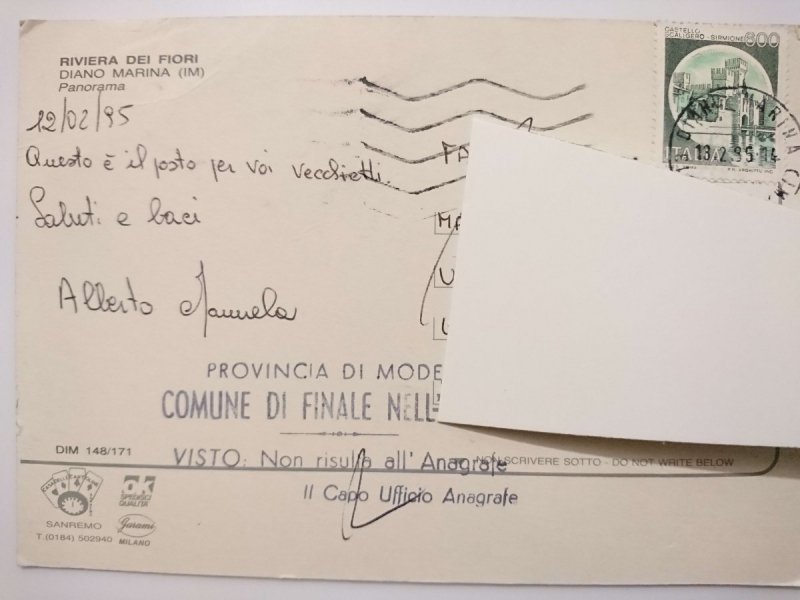 RIVIERA DEI FIORI
DIANO MARINA (IM)
Panorama
CASTELLO
SCALIGERO - SIRMIONE
600
ITALIA
13.2.95-14
12/02/95
Questo è il posto per voi vecchietti.
Saluti e baci
Alberto Manuela
FA
MA
PROVINCIA DI MODE
COMUNE DI FINALE NELL
VISTO: Non risulta all' Anagrafe
Il Capo Ufficio Anagrafe
DIM 148/171
NON SCRIVERE SOTTO - DO NOT WRITE BELOW
OK
SPEDISCI
QUALITÀ
SANREMO
T.(0184) 502940
Garami
MILANO